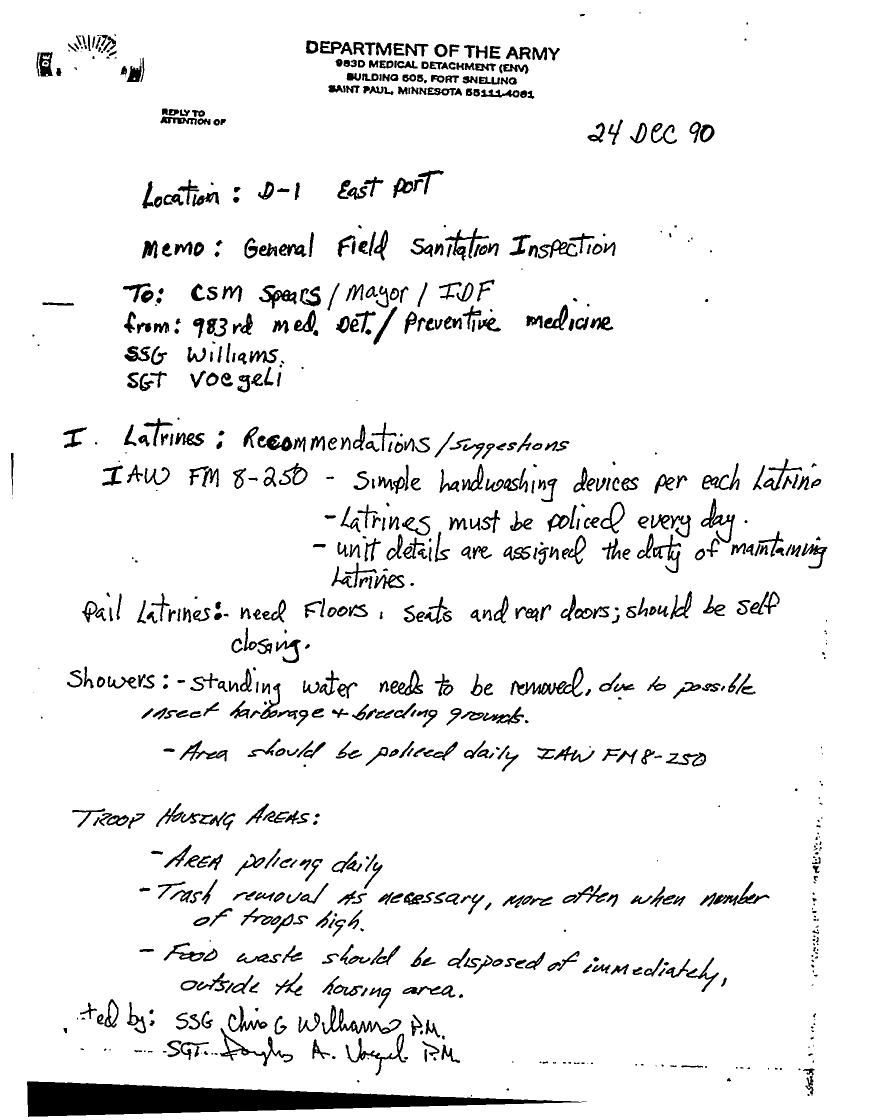 DEPARTMENT OF THE ARMY
983D MEDICAL DETACHMENT (ENV)
BUILDING 505, FORT SNELLING
SAINT PAUL, MINNESOTA 55111-4061
REPLY TO
ATTENTION OF
24 DEC 90
Location: D-1 East Port
Memo: General Field Sanitation Inspection
To: CSM Spears / Mayor / IDF
from: 983rd med. Det. / Preventive medicine
SSG Williams.
SGT Voegeli
I. Latrines: Recommendations/suggestions
IAW FM 8-250 - Simple handwashing devices per each Latrine
- Latrines must be policed every day.
- unit details are assigned the duty of maintaining
Latrines.
Pail Latrines:- need Floors, Seats and rear doors; should be self
closing.
Showers: - Standing water needs to be removed, due to possible
insect harborage + breeding grounds.
- Area should be policed daily IAW FM 8-250
Troop Housing Areas:
- Area policing daily
- Trash removal as necessary, more often when number
of troops high.
- Food waste should be disposed of immediately,
outside the housing area.
ted by: SSG Chris G Williams P.M.
SGT. Douglas A. Voegeli P.M.